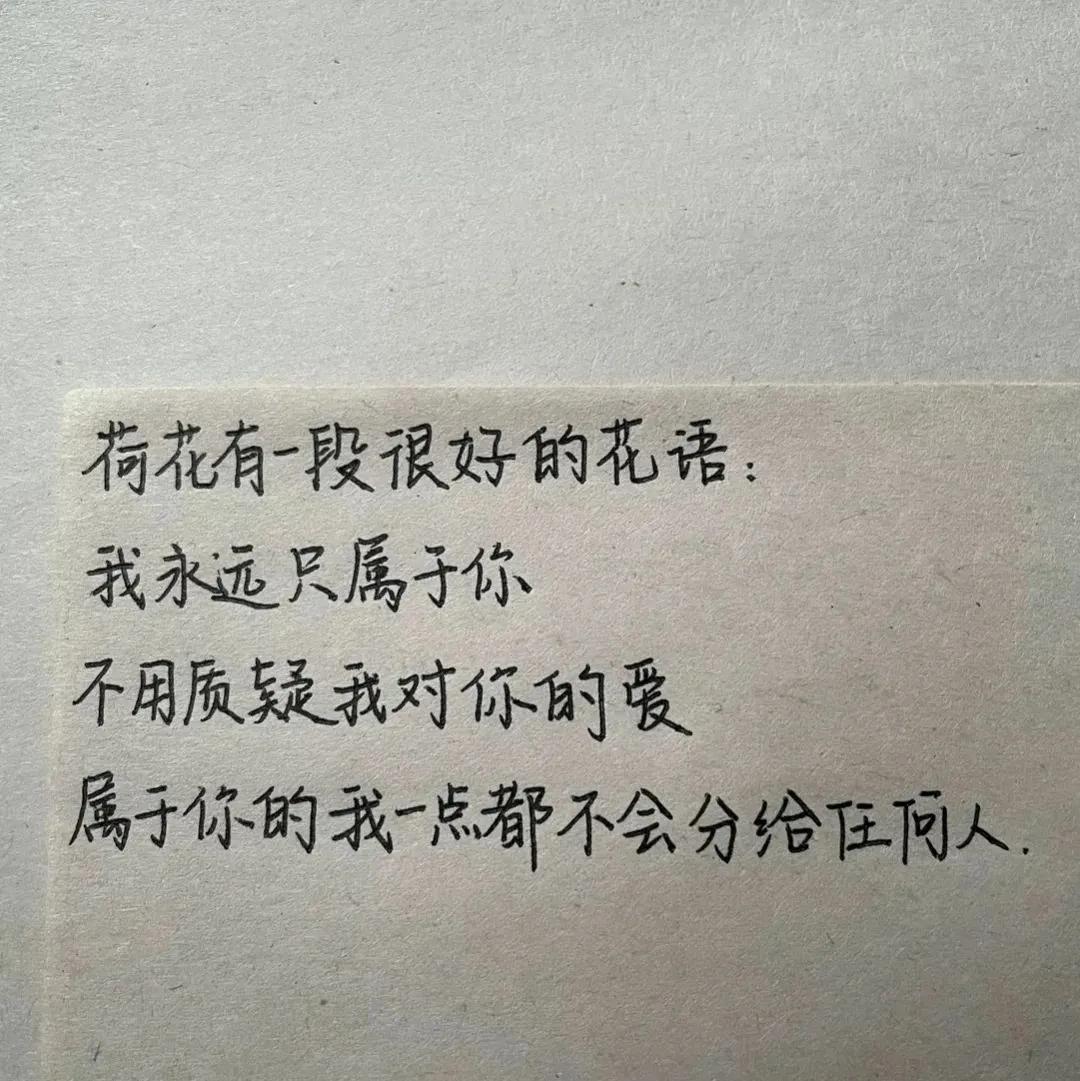 荷花有一段很好的花语：
我永远只属于你
不用质疑我对你的爱
属于你的我一点都不会分给任何人.